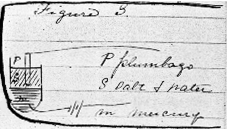 Figure 3.
P
P plumbago
S Salt & water
m mercury